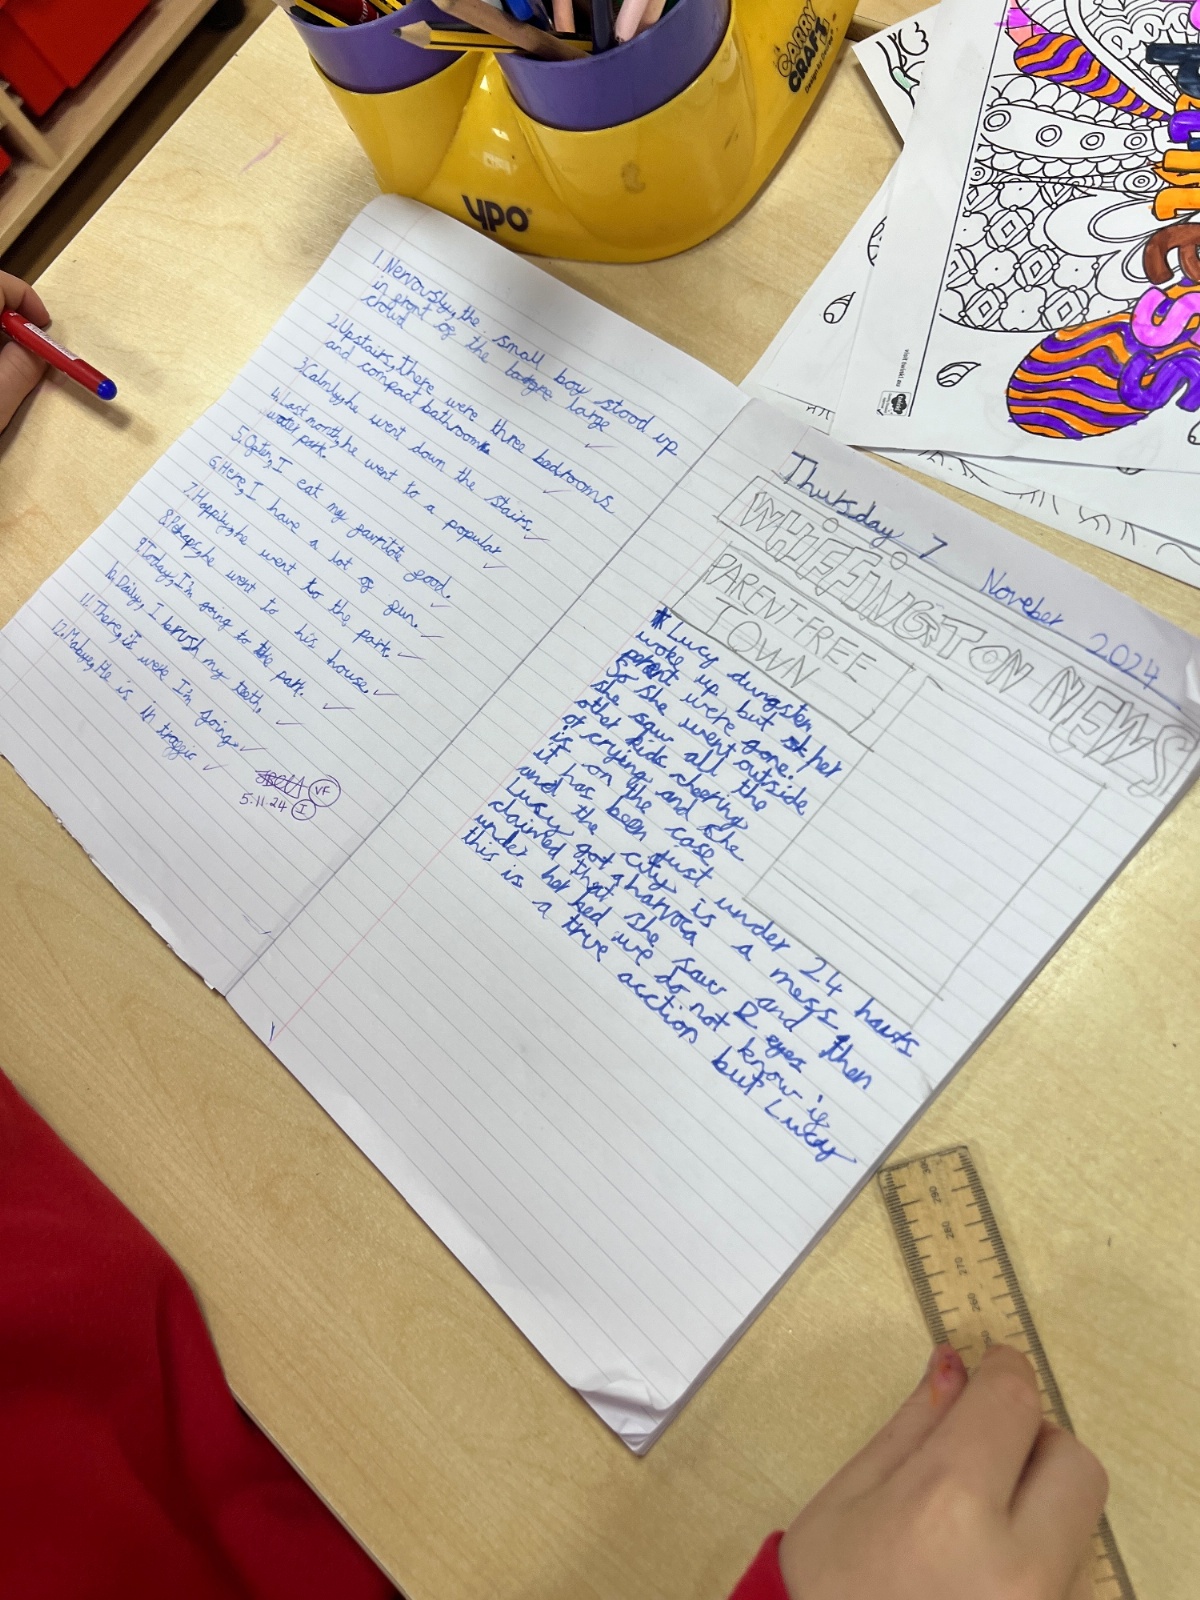 CARRY
CRAFT
ypo
1. Nervously, the small boy stood up
in front of the large
crowd
2. Upstairs, there were three bedrooms
and compact bathroom
3. Calmly, he went down the stairs.
4. Last month, he went to a popular
water park.
5. Often, I eat my favritote food.
6. Here, I have a lot of fun.
7. Happily, he went to the park.
8. Pehaps, he went to his house.
9. Today, I'm going to the park.
10. Daily, I brush my teeth.
11. There, is were I'm going.
12. Mabye, He is in traffic
VF
5.11.24 I
Thursday 7 Noveber 2024
WHIFFINGTON NEWS
PARENT-FREE
TOWN
Lucy dungsten
woke up but her
perent were gone.
So she went outside
she saw all the
other kids cheering
of crying and she
is on the case
it has been just under 24 hauts
and the city is a mess, then
Lucy got a
claimed that she saw 2 eyes
under her bed we do not know if
this is a true acction but Lucy
300 290 280 270 260 250